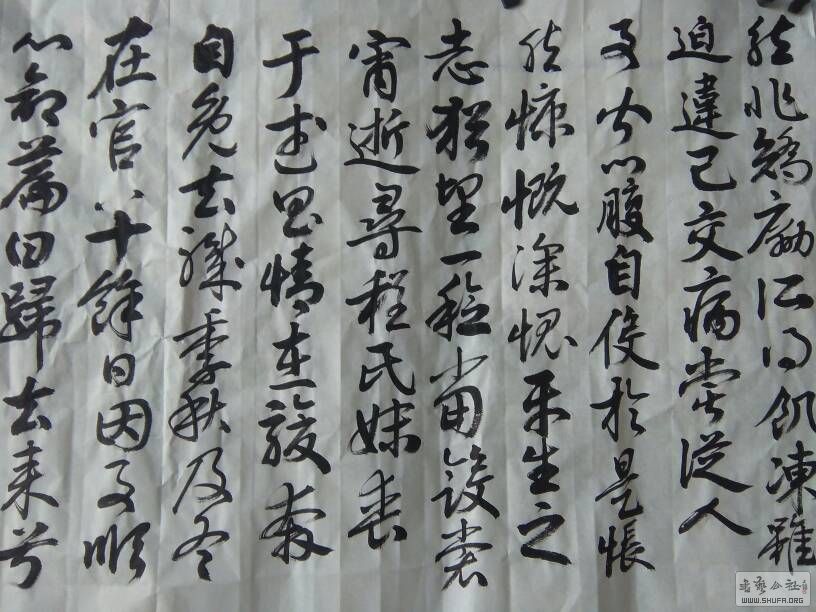 然非矯勵所得飢凍雖
迫違己交病嘗從人
事皆口腹自役於是悵
然慷慨深愧平生之
志猶望一稔當斂裳
宵逝尋程氏妹喪
于武昌情在駿奔
自免去職季秋及冬
在官八十餘日因事順
心命篇曰歸去來兮
書藝公社
WWW.SHUFA.ORG